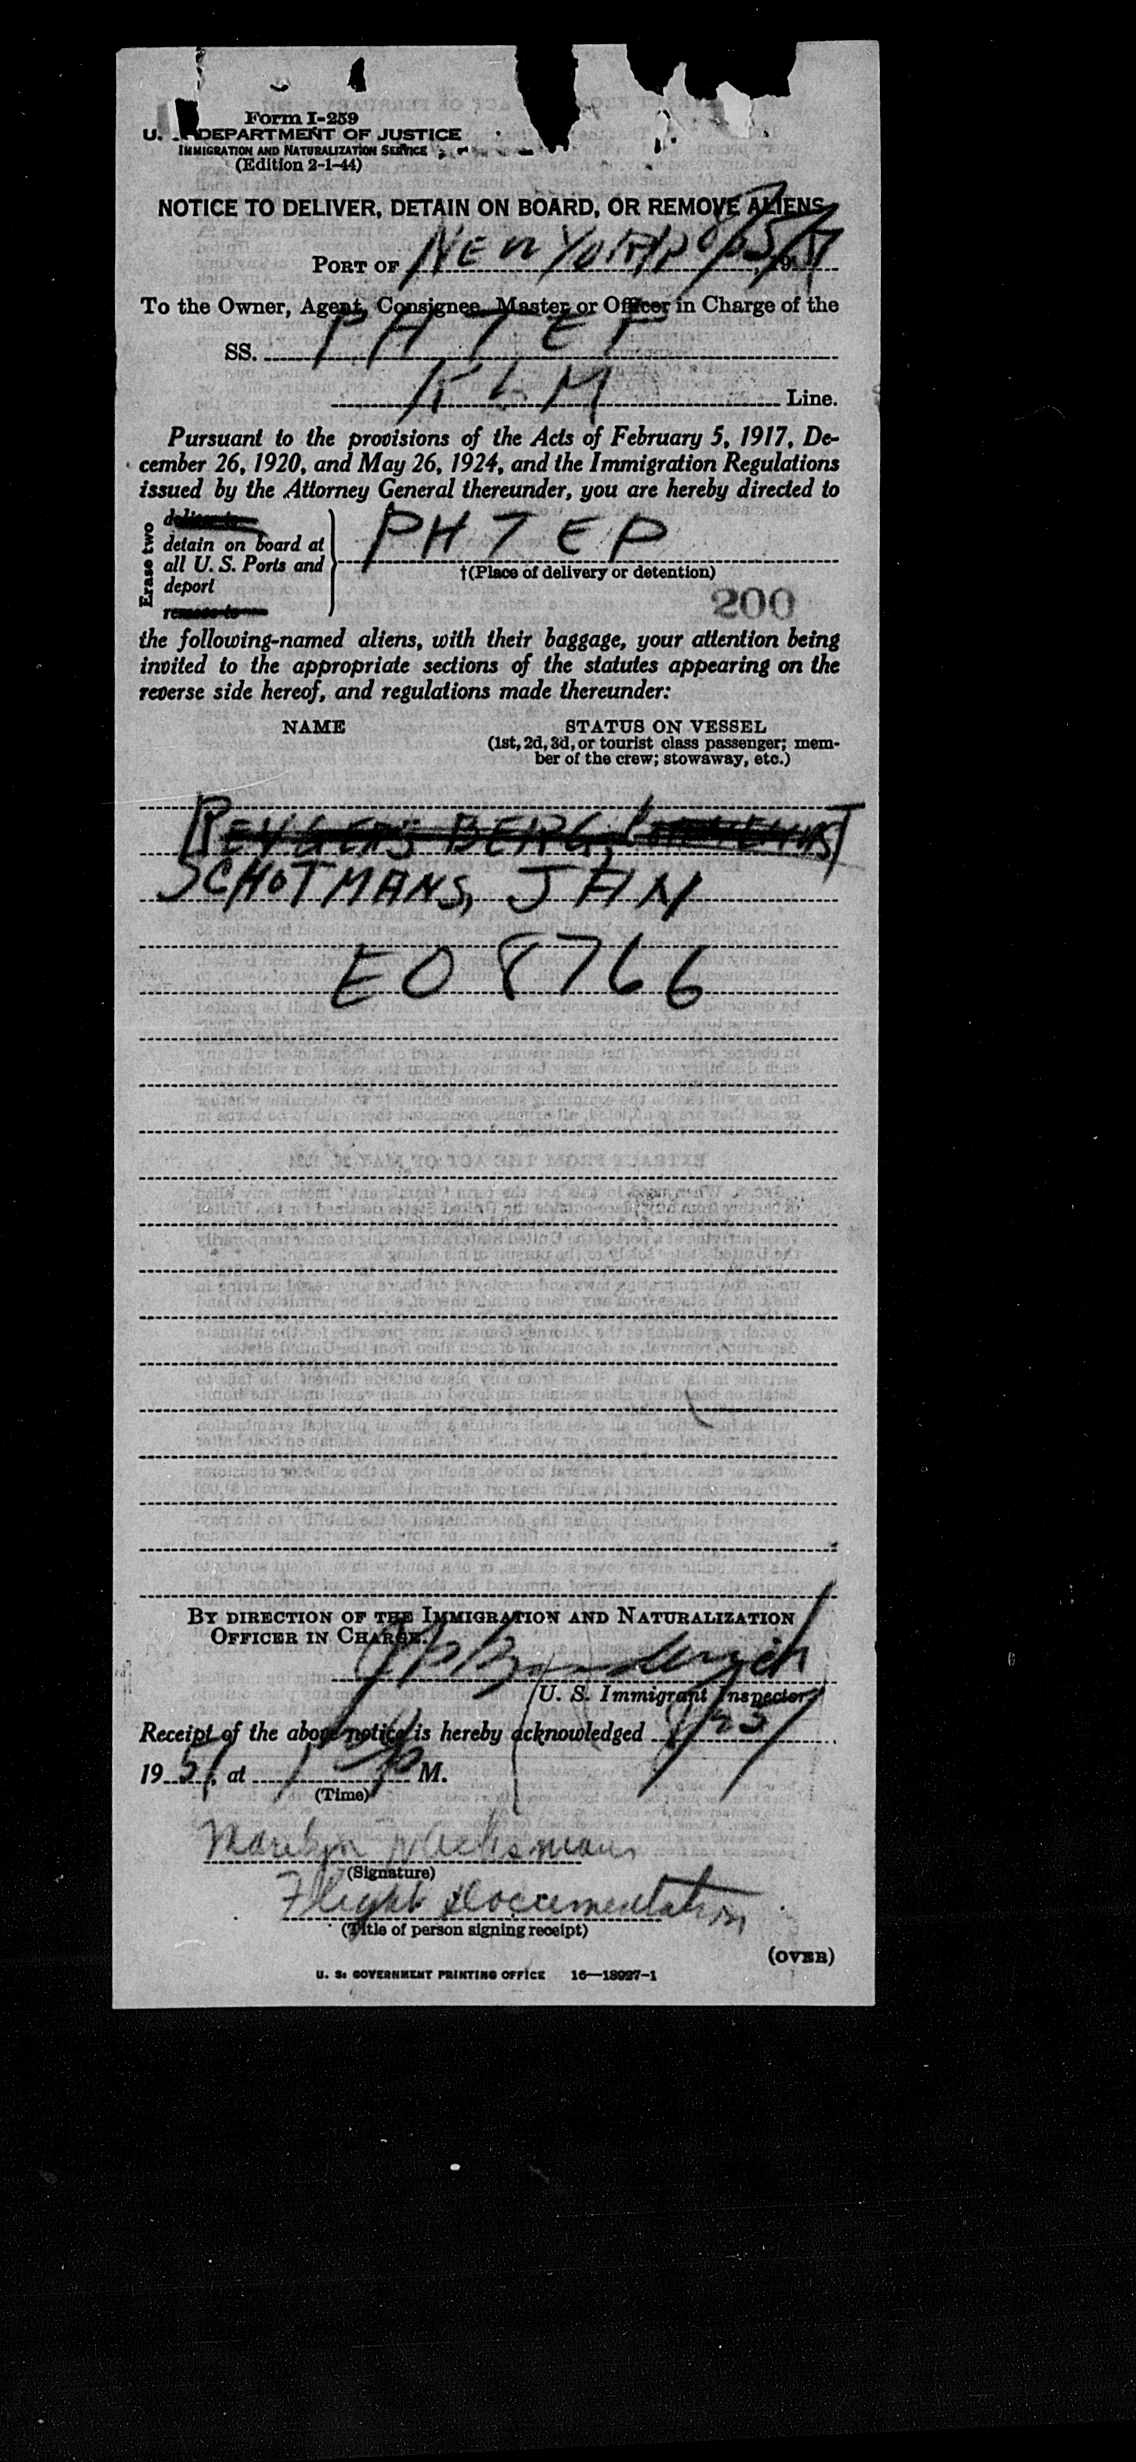 Form I-259
U. S. DEPARTMENT OF JUSTICE
IMMIGRATION AND NATURALIZATION SERVICE
(Edition 2-1-44)
NOTICE TO DELIVER, DETAIN ON BOARD, OR REMOVE ALIENS
PORT OF NEW YORK 8/25/51, 19
To the Owner, Agent, Consignee, Master, or Officer in Charge of the
SS. PHTEP
KLM Line.
Pursuant to the provisions of the Acts of February 5, 1917, De-
cember 26, 1920, and May 26, 1924, and the Immigration Regulations
issued by the Attorney General thereunder, you are hereby directed to
Erase two
deliver to
detain on board at
all U. S. Ports and
deport
remove to
PHTEP
†(Place of delivery or detention)
200
the following-named aliens, with their baggage, your attention being
invited to the appropriate sections of the statutes appearing on the
reverse side hereof, and regulations made thereunder:
NAME
STATUS ON VESSEL
(1st, 2d, 3d, or tourist class passenger; mem-
ber of the crew; stowaway, etc.)
SCHOTMANS, JAN
EO 8766
BY DIRECTION OF THE IMMIGRATION AND NATURALIZATION
OFFICER IN CHARGE.
U. S. Immigrant Inspector
Receipt of the above notice is hereby acknowledged 8/25/
1951, at M.
(Time)
(Signature)
Flight Documentation
(Title of person signing receipt)
(OVER)
U. S. GOVERNMENT PRINTING OFFICE 16—18927-1